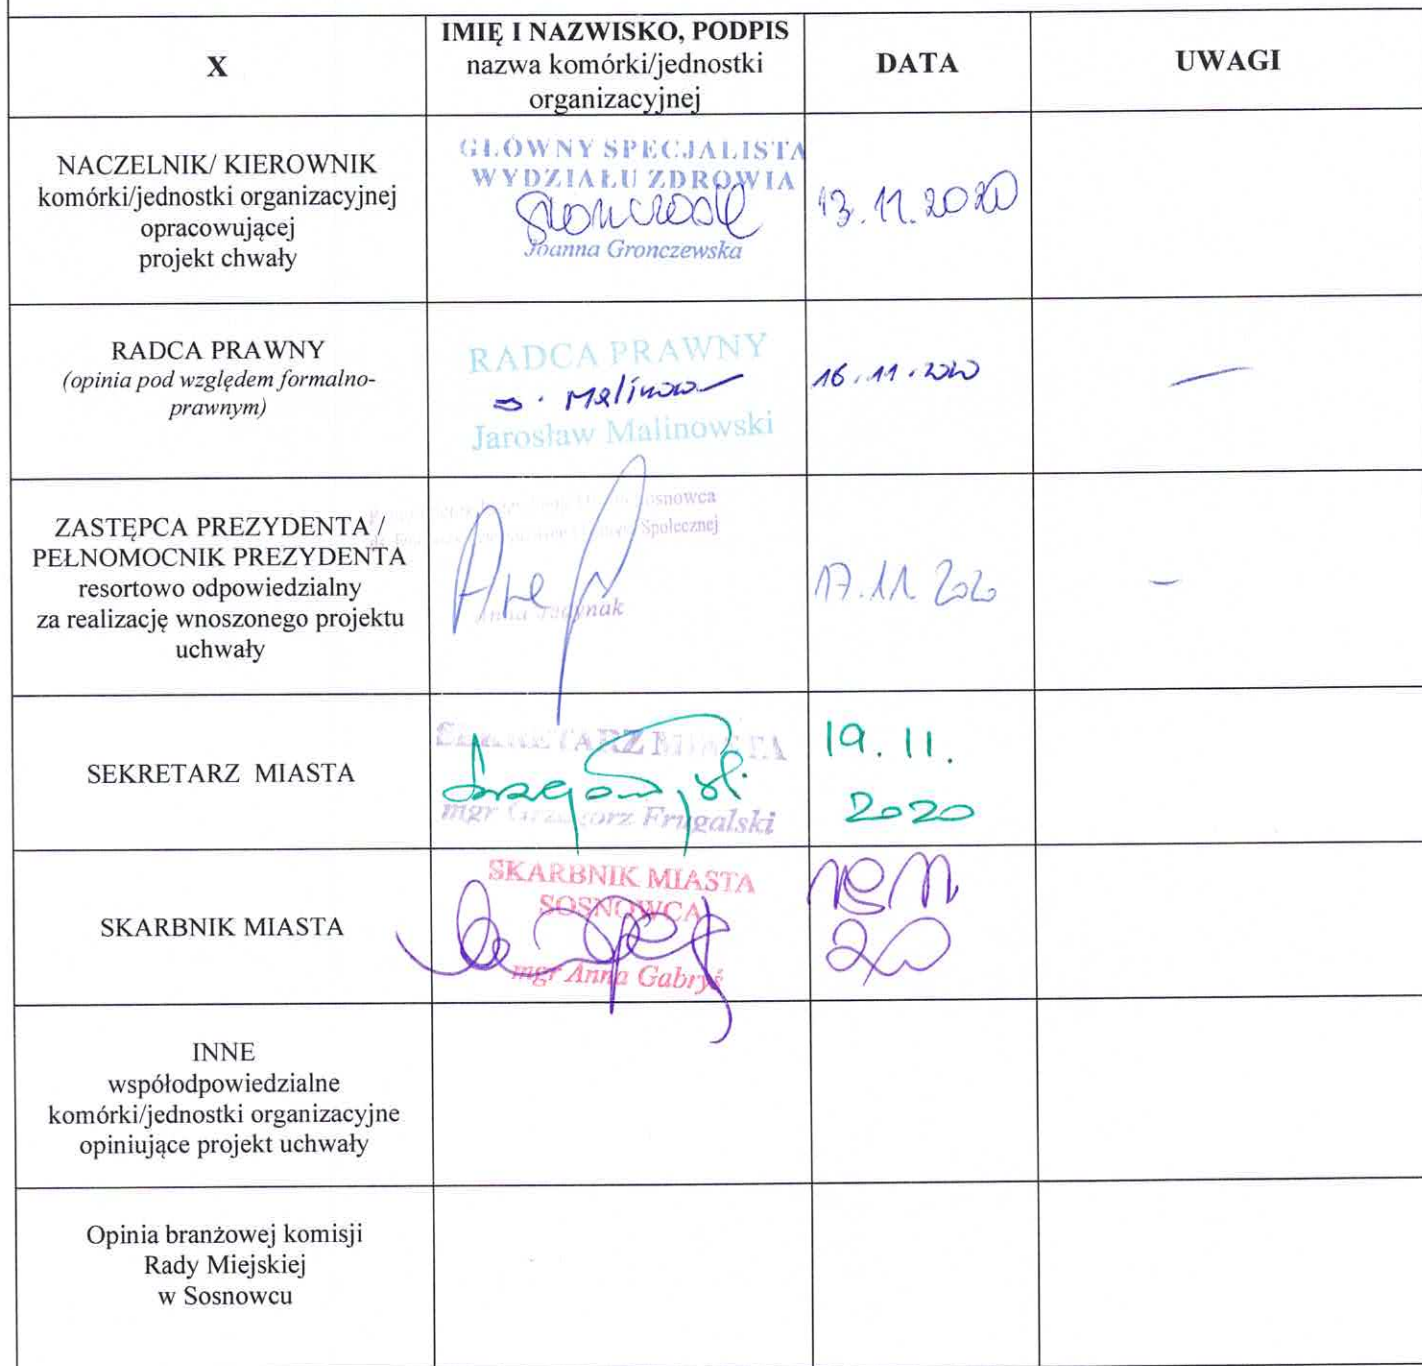 X
IMIĘ I NAZWISKO, PODPIS
nazwa komórki/jednostki
organizacyjnej
DATA
UWAGI
NACZELNIK/ KIEROWNIK
komórki/jednostki organizacyjnej
opracowującej
projekt chwały
GŁÓWNY SPECJALISTA
WYDZIAŁU ZDROWIA
Joanna Gronczewska
13.11.2020
RADCA PRAWNY
(opinia pod względem formalno-
prawnym)
RADCA PRAWNY
Jarosław Malinowski
16.11.2020
ZASTĘPCA PREZYDENTA /
PEŁNOMOCNIK PREZYDENTA
resortowo odpowiedzialny
za realizację wnoszonego projektu
uchwały
Sosnowca
Społecznej
Anna
17.11.2020
SEKRETARZ MIASTA
SEKRETARZ MIASTA
mgr Grzegorz Frugalski
19.11.
2020
SKARBNIK MIASTA
SKARBNIK MIASTA
SOSNOWCA
mgr Anna Gabryś
INNE
współodpowiedzialne
komórki/jednostki organizacyjne
opiniujące projekt uchwały
Opinia branżowej komisji
Rady Miejskiej
w Sosnowcu